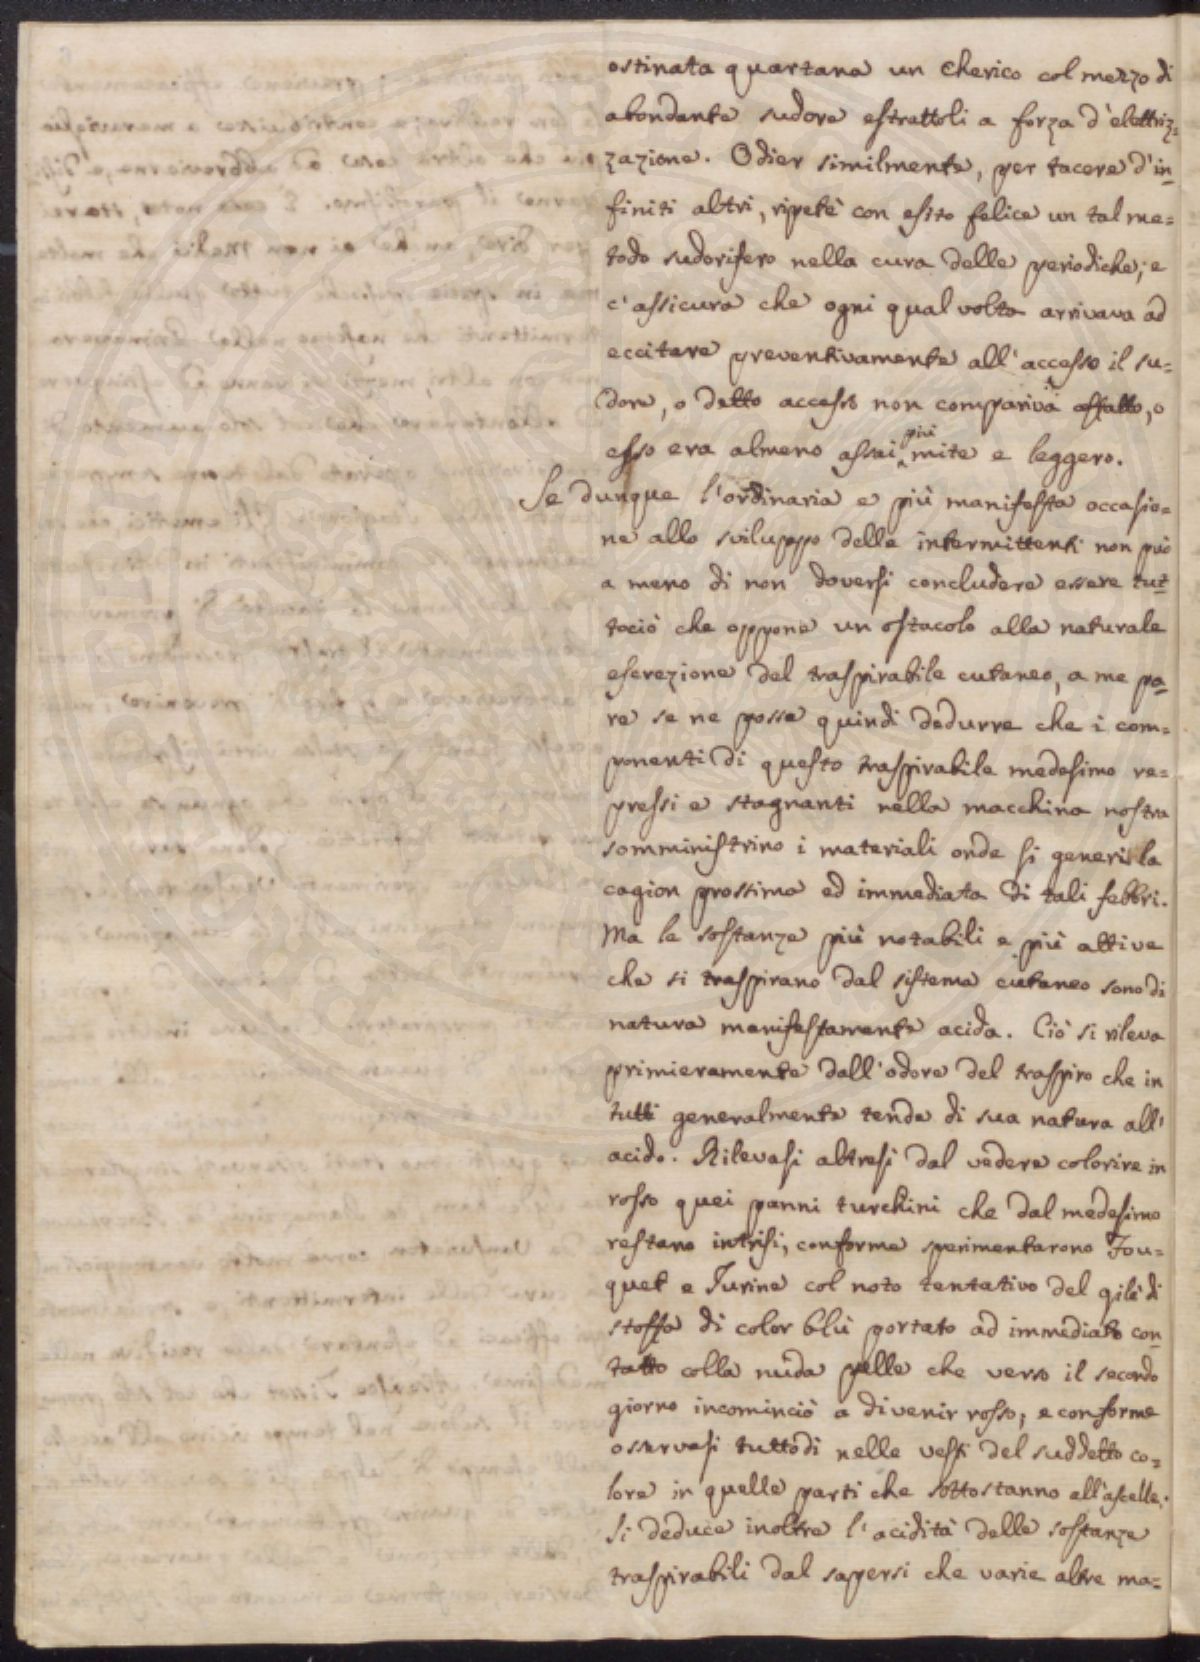 ostinata quartana un Cherico col mezzo di
abondante sudore estrattoli a forza d'elettriz=
zazione. Odier similmente, per tacere d'in=
finiti altri, ripetè con esito felice un tal me=
todo sudorifero nella cura delle periodiche; e
c'assicura che ogni qual volta arrivava ad
eccitare preventivamente all'accesso il su=
dore, o detto accesso non compariva affatto, o
esso era almeno assai più mite e leggero.
Se dunque l'ordinaria e più manifesta occasio=
ne allo sviluppo delle intermittenti non può
a meno di non doversi concludere essere tut=
tociò che oppone un ostacolo alla naturale
escrezione del traspirabile cutaneo, a me pa=
re se ne possa quindi dedurre che i com=
ponenti di questo traspirabile medesimo re=
pressi e stagnanti nella macchina nostra
somministrino i materiali onde si generi la
cagion prossima ed immediata di tali febbri.
Ma le sostanze più notabili e più attive
che si traspirano dal sistema cutaneo sono di
natura manifestamente acida. Ciò si rileva
primieramente dall'odore del traspiro che in
tutti generalmente tende di sua natura all'
acido. Rilevasi altresì dal vedere colorire in
rosso quei panni turchini che dal medesimo
restano intrisi, conforme sperimentarono Fou=
quet e Jurine col noto tentativo del gilè di
stoffa di color blù portato ad immediato con=
tatto colla nuda pelle che verso il secondo
giorno incominciò a divenir rosso; e conforme
osservasi tuttodì nelle vesti del suddetto co=
lore in quelle parti che sottostanno all'ascelle.
Si deduce inoltre l'acidità delle sostanze
traspirabili dal sapersi che varie altre ma=